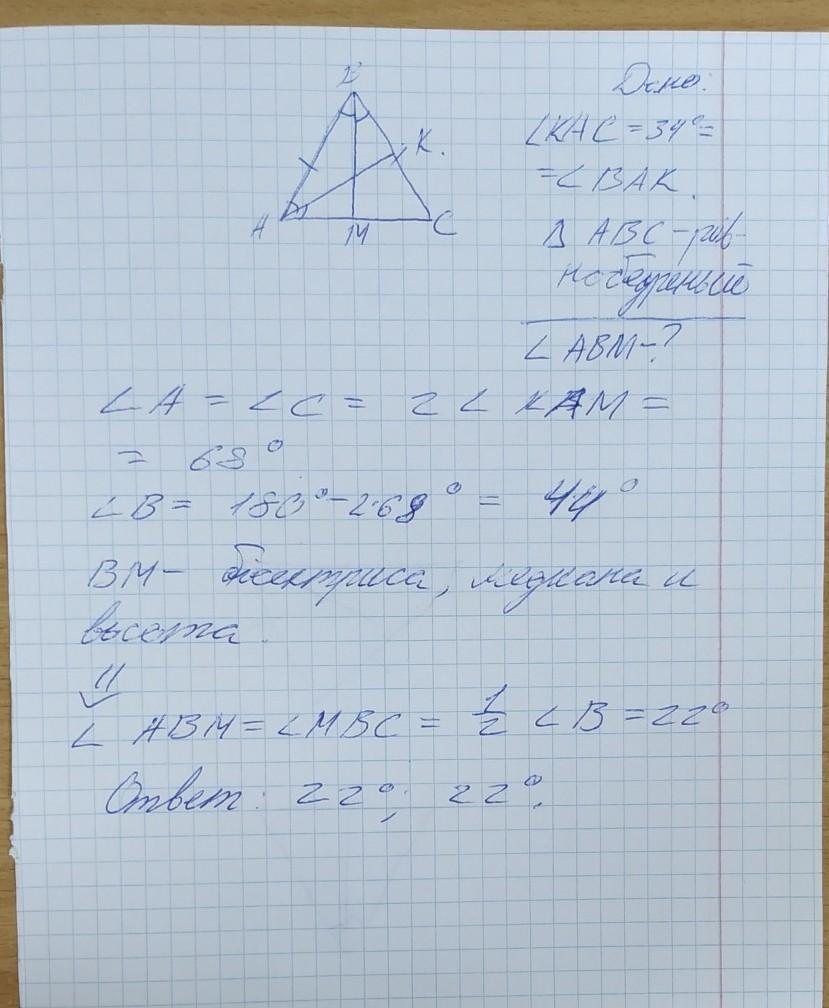 B
K.
A
M
C
Дано:
∠KAC = 34° =
= ∠BAK.
Δ ABC - рав-
нобедреный
∠ ABM - ?
∠A = ∠C = 2∠KAM =
= 68°
∠B = 180° - 2·68° = 44°
BM - биссектриса, медиана и
высота.
⇓
∠ ABM = ∠MBC = 1/2 ∠B = 22°
Ответ: 22°; 22°.